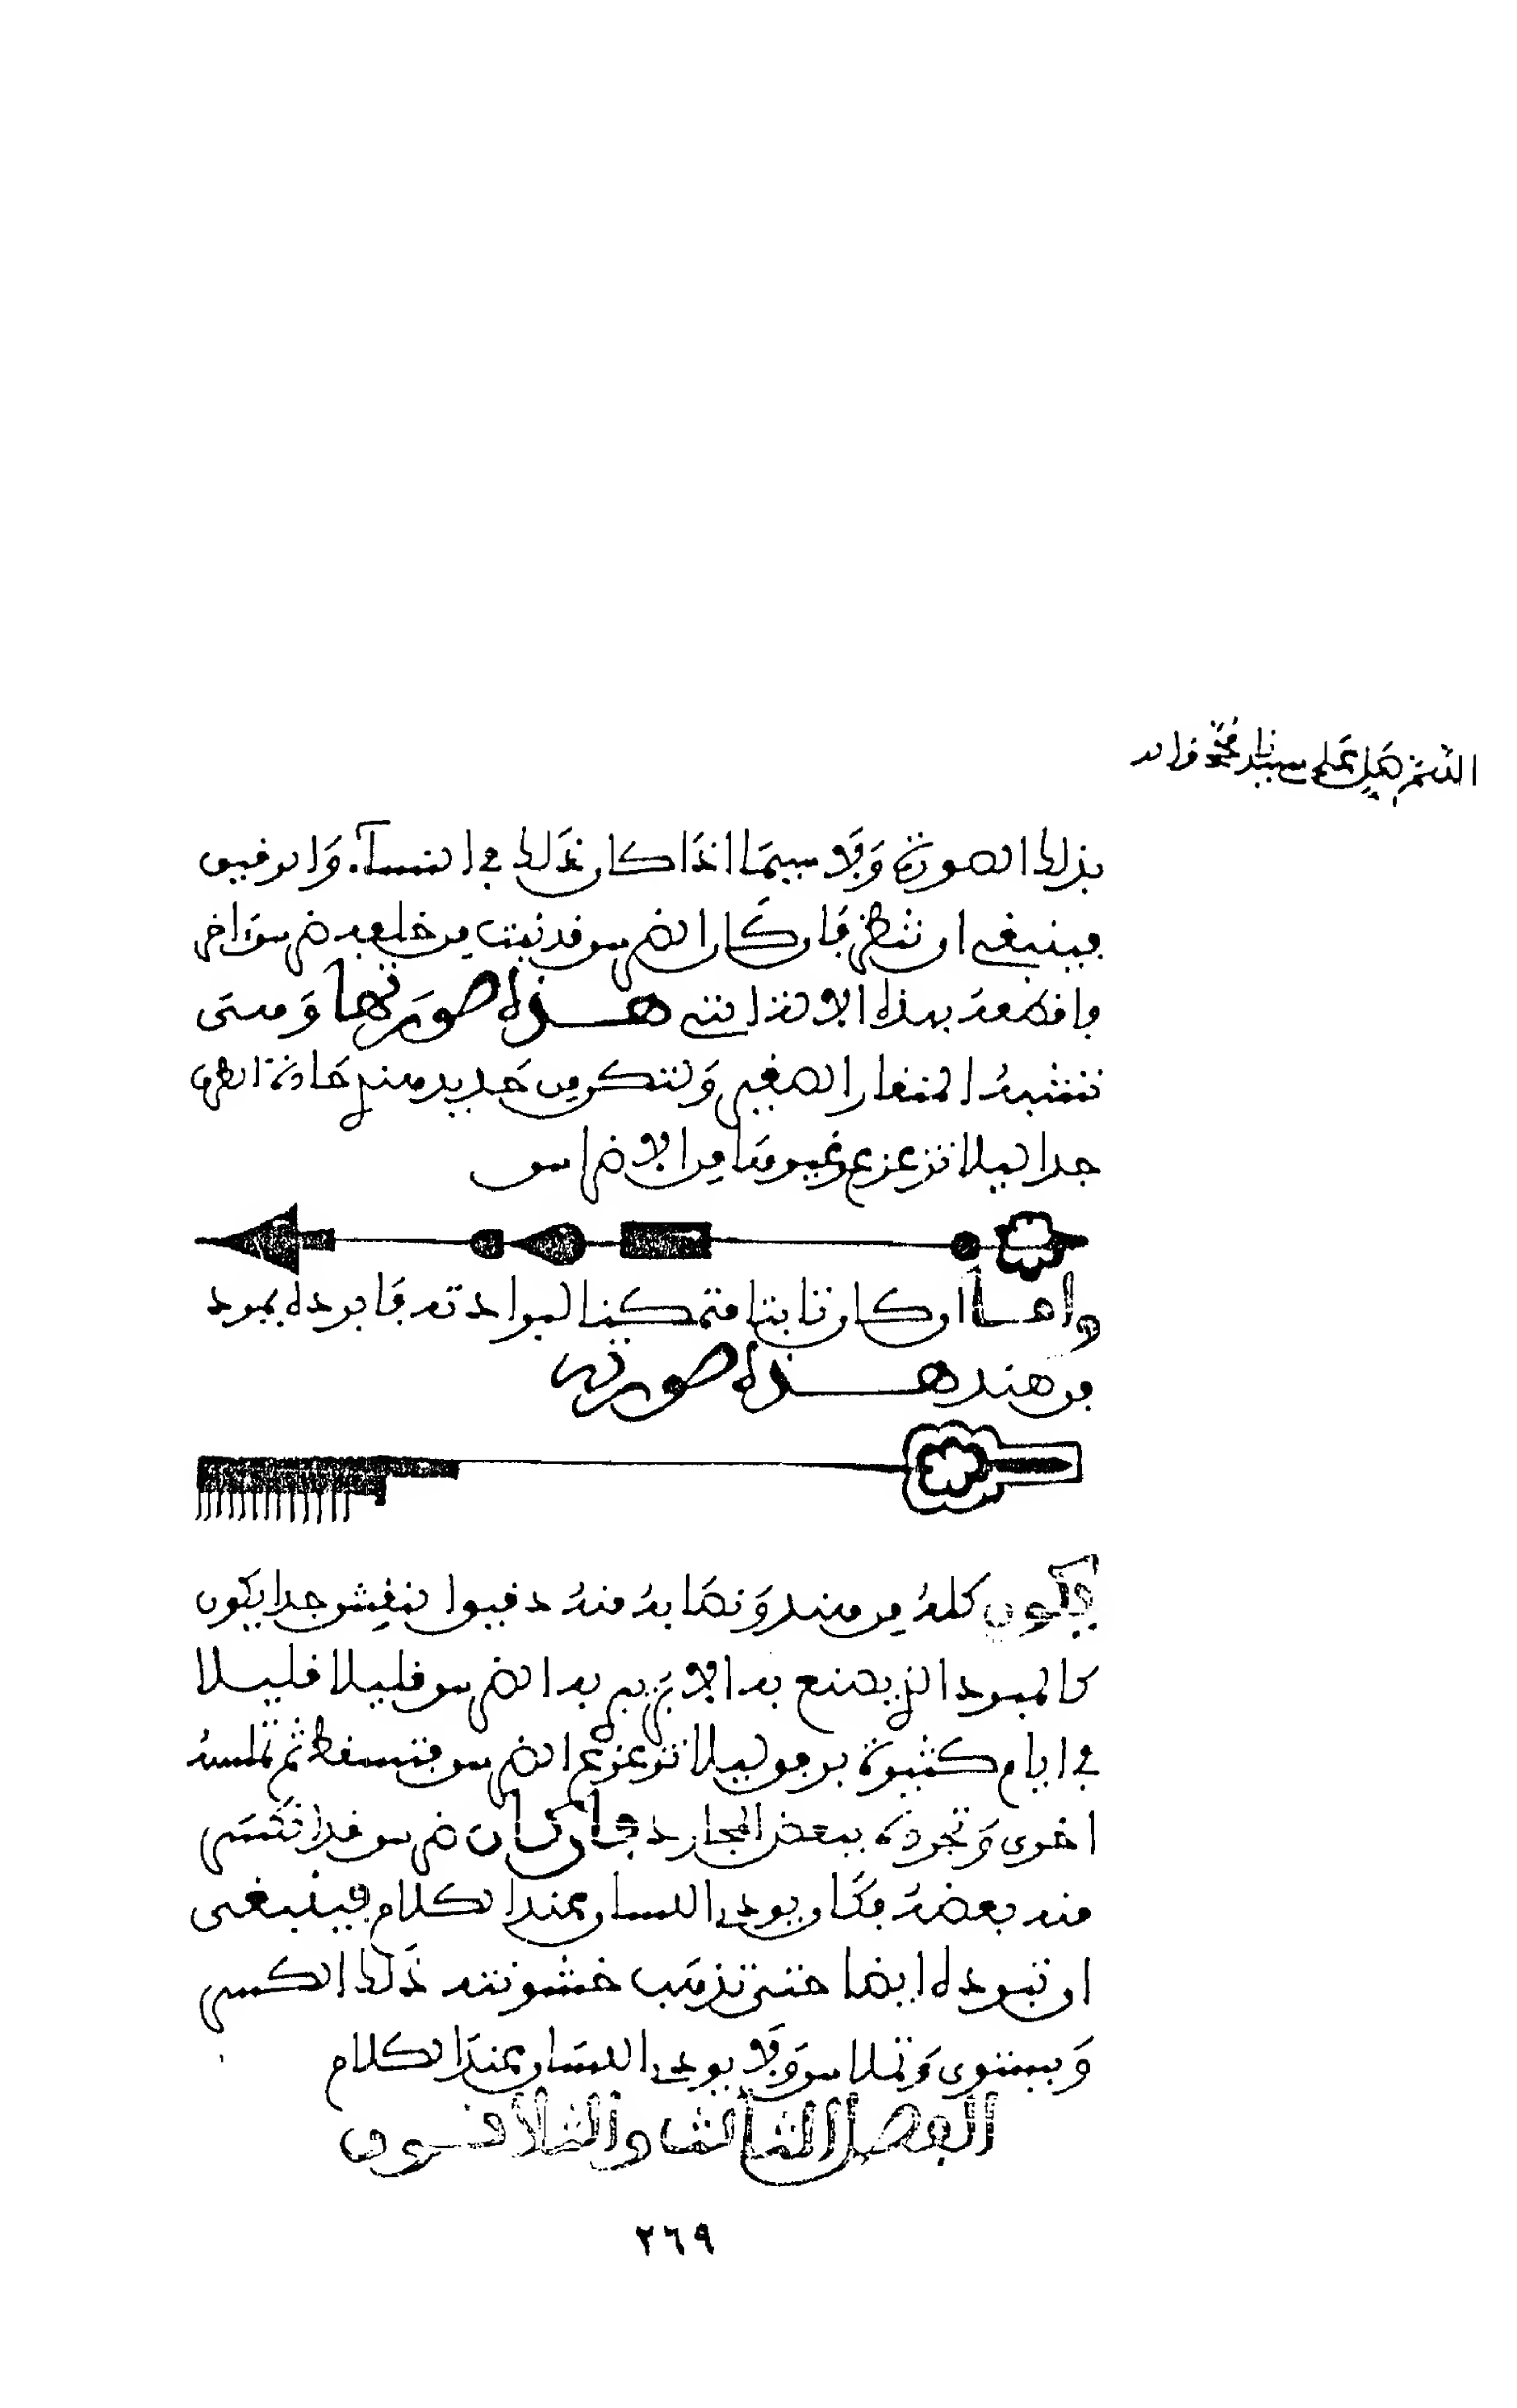 اللهم صل على سيدنا محمد وآله
بذلك الصورة ولا سيما اذا كان ذلك في النساء والرقيق
فينبغي ان تنظر فان كان الضرس قد نبت من خلفه ضرس اخر
فاقطعه بهذه الالة التي هذه صورتها وهي
تشبه المنقار الصغير ولتكن من حديد هندي حادة الطرف
جدا ليلا تزعزع غيره من الاضراس
واما ان كان ثابتا متمكنا لبرادته فابرده بمبرد
من هند هذه صورته
يكون كله من هند ونصابه منه دقيق النقش جدا يكون
كالمبرد الذي يصنع به الابر يبرد به الضرس قليلا قليلا
في ايام كثيرة برفق ليلا تزعزع الضرس فتسقط ثم تملسه
اخرى وتجرده ببعض المجارد فان كان ضرس قد انكسر
منه بعضه فكان يوذي اللسان عند الكلام فينبغي
ان تبرده ايضا حتى تذهب خشونته ذلك الكسر
ويستوي وتملاس ولا يوذي اللسان عند الكلام
الفصل الثالث والثلاثون
٢٦٩